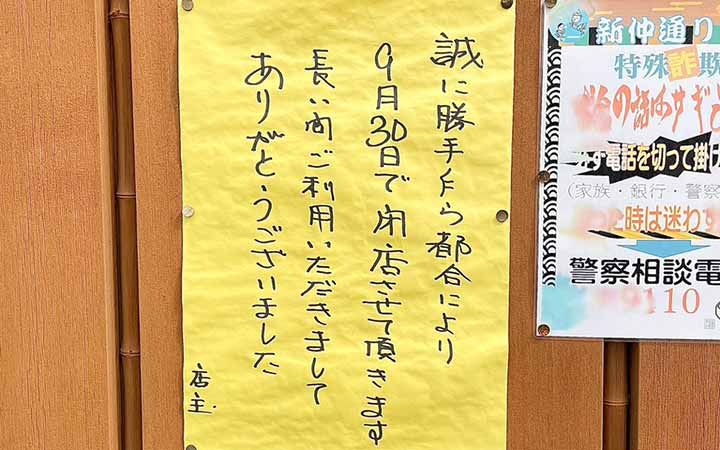 誠に勝手乍ら都合により
9月30日で閉店させて頂きます
長い間ご利用いただきまして
ありがとうございました
店主.
新仲通り
特殊詐欺
の話はサギ
電話を切って掛け
(家族・銀行・警察
時は迷わ
警察相談電
9110